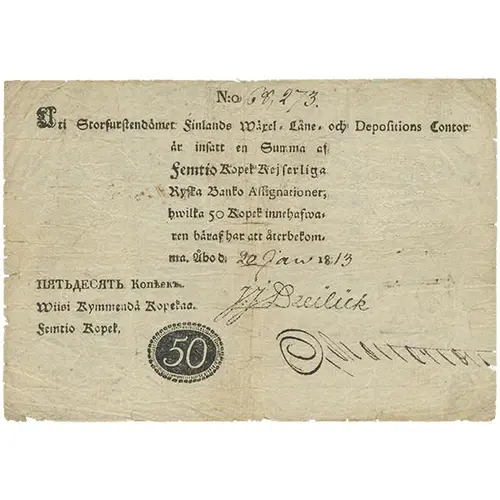 N:o 68,273.
Uti Storfurstendömet Finlands Wäxel- Låne- och Depositions Contor
är insatt en Summa af
Femtio Kopek Kejserliga
Ryska Banko Assignationer,
hwilka 50 Kopek innehafwa-
ren häraf har att återbekom-
ma. Åbo d. 20 Jan 1813
ПЯТЬДЕСЯТЬ Копѣекъ.
Wiisi Kymmendä Kopekaa.
Femtio Kopek.
50